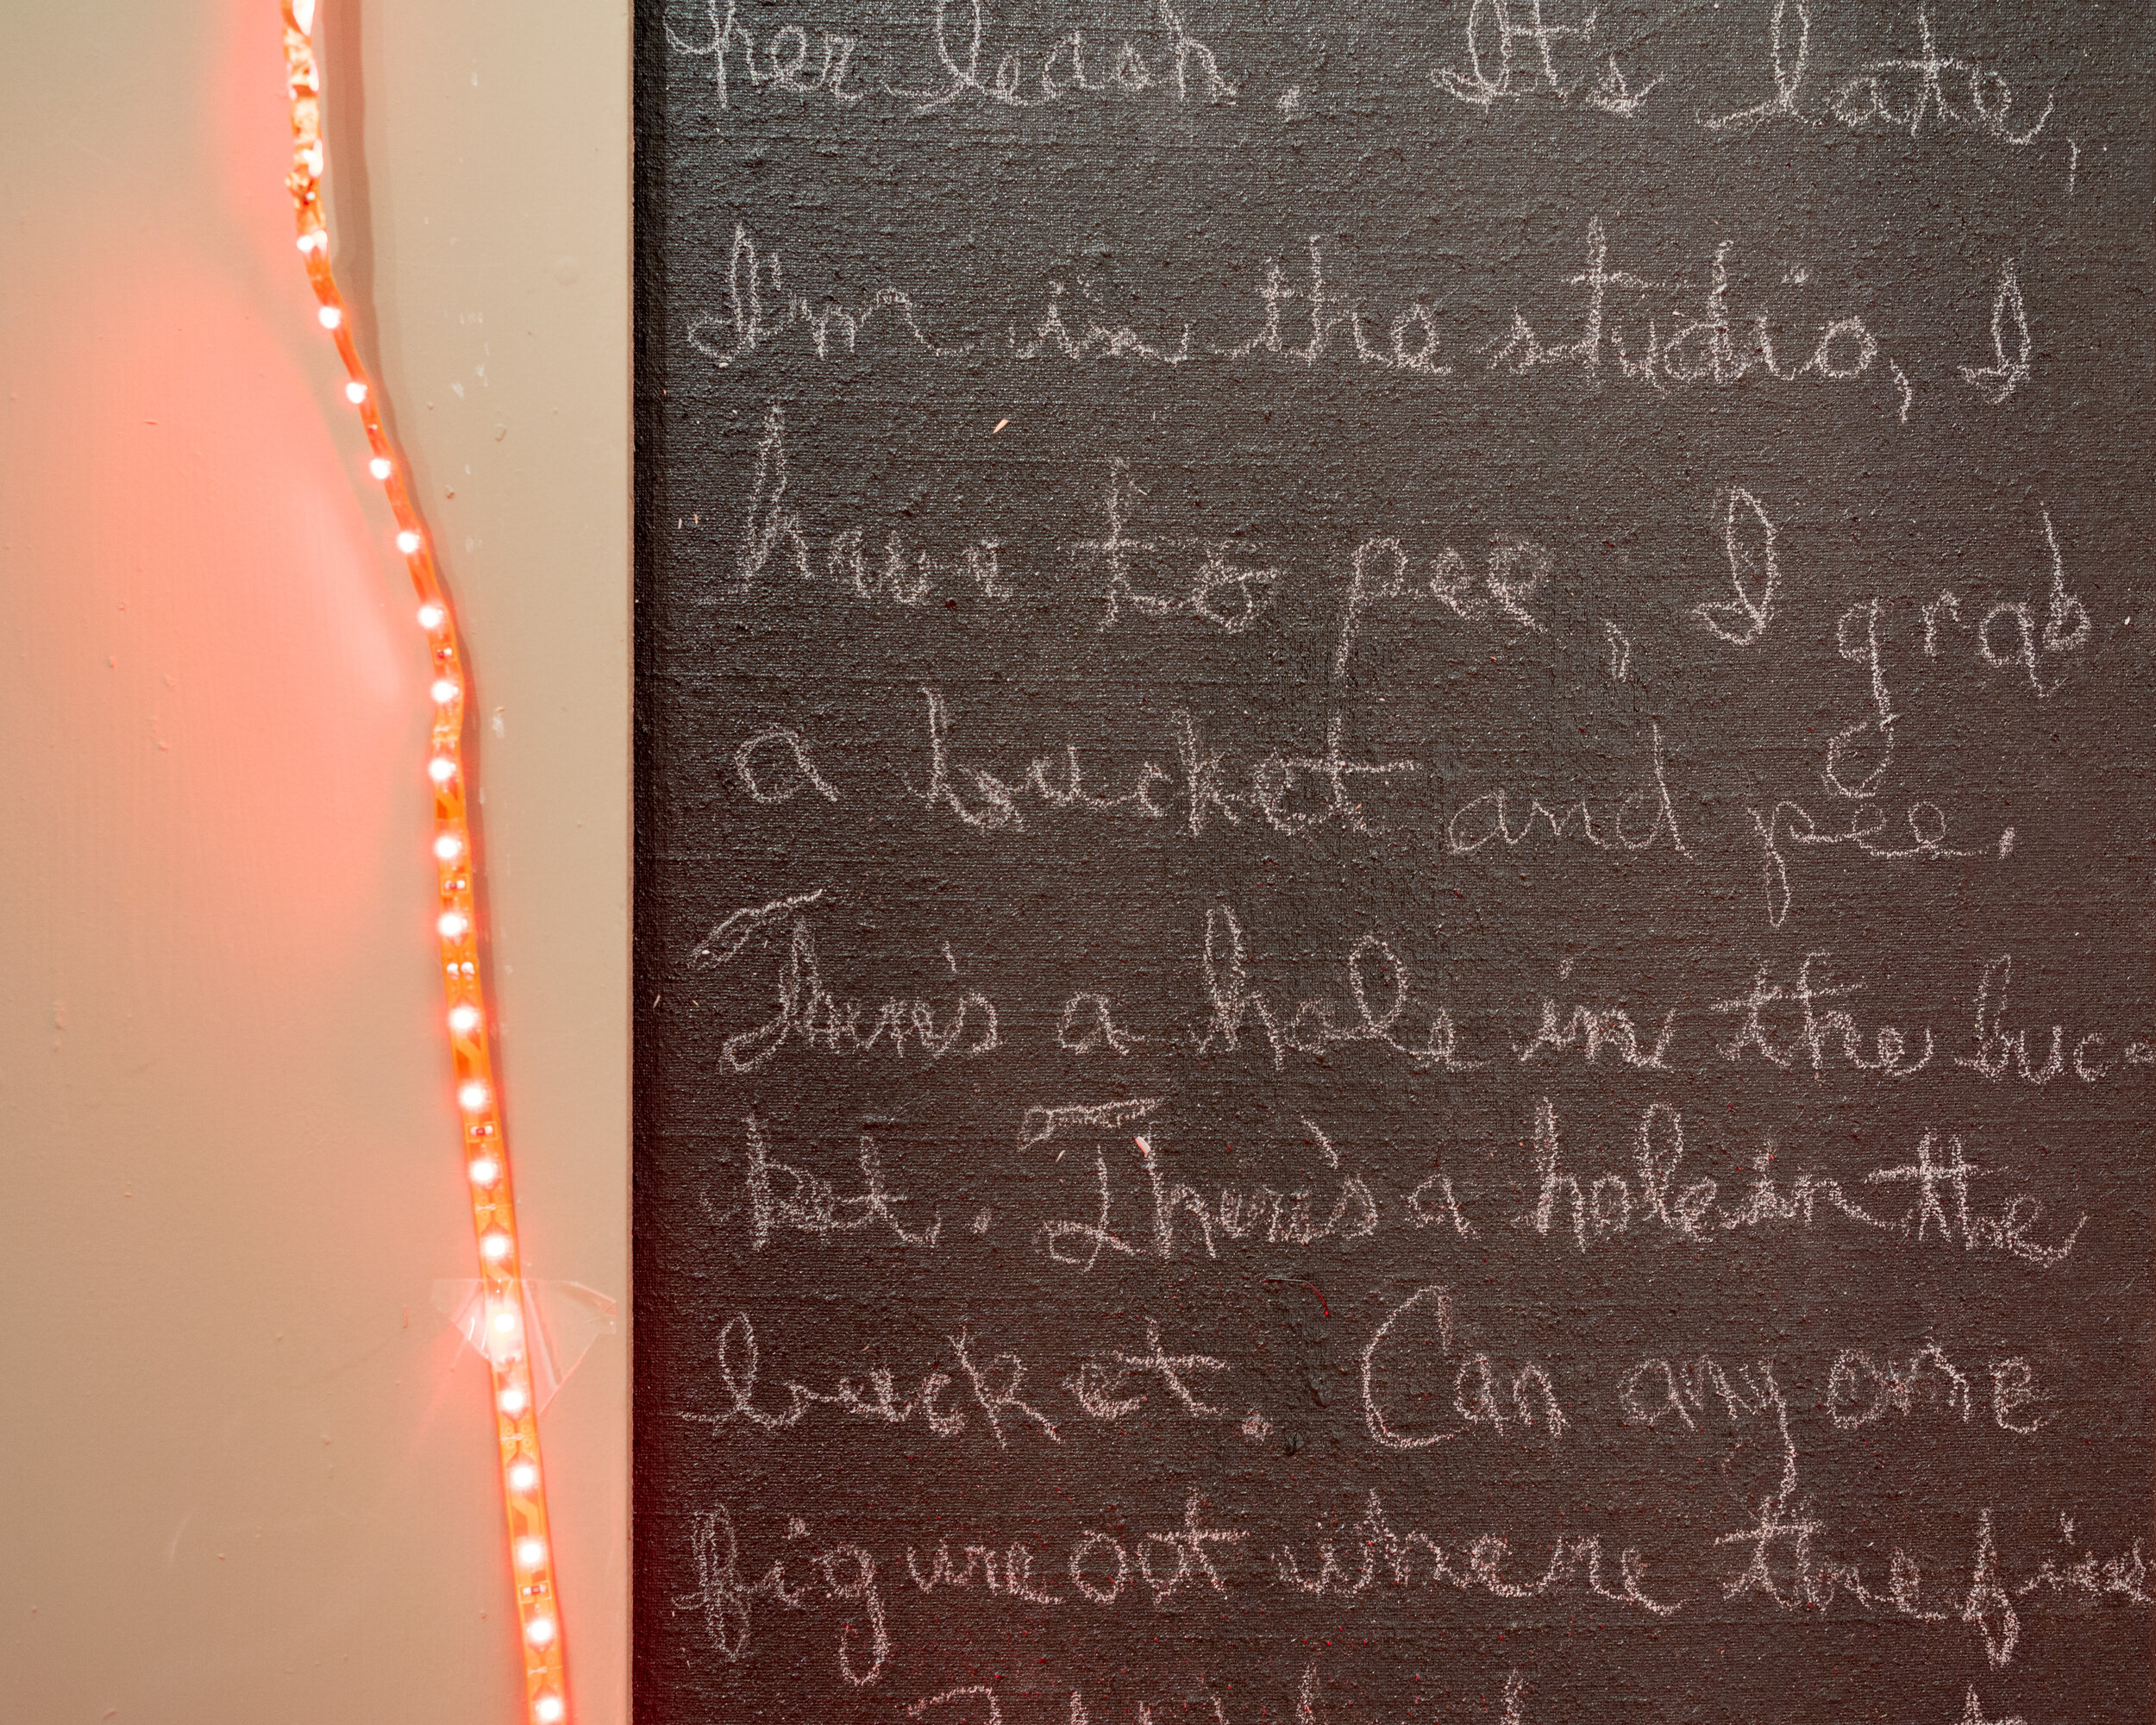 her leash. It's late,
I'm in the studio, I
have to pee, I grab
a bucket and pee.
There's a hole in the buc-
ket. There's a hole in the
bucket. Can anyone
figure out where the